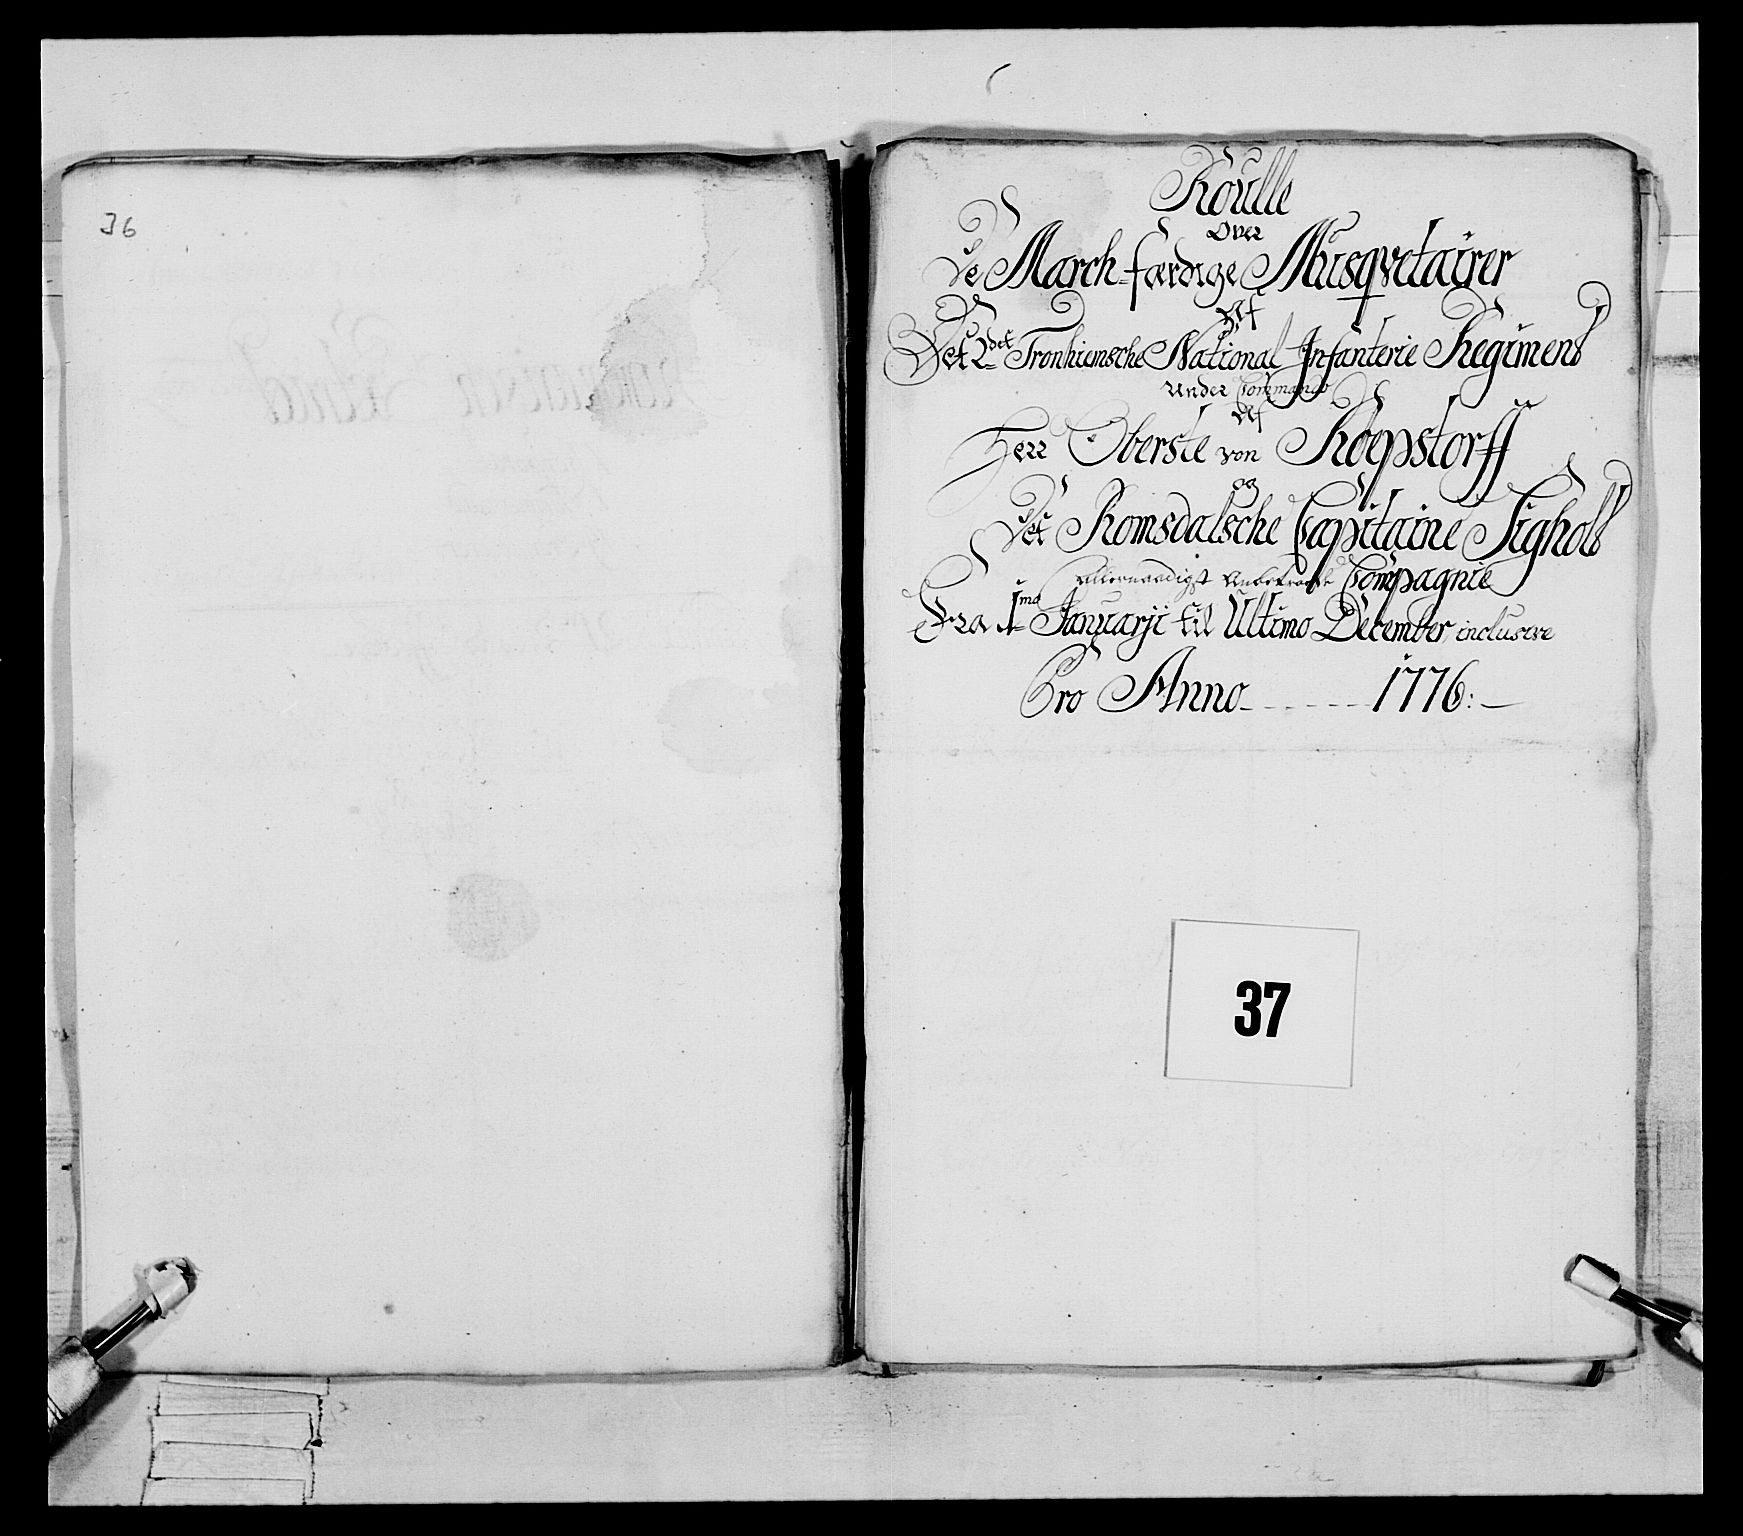 36
Roulle
Over
De March-færdige Musqvetairer
Af
Det 2det Tronhiemsche National Infanterie Regiment
Under Commando
Af
Herr Oberste von Röepstorff
og
Det Romsdalsche Capitaine Sigholt
allernaadigst Anbetroede Compagnie
Fra 1ma Januarji til Ultimo December inclusive
Pro Anno - - - - - - 1776:
37